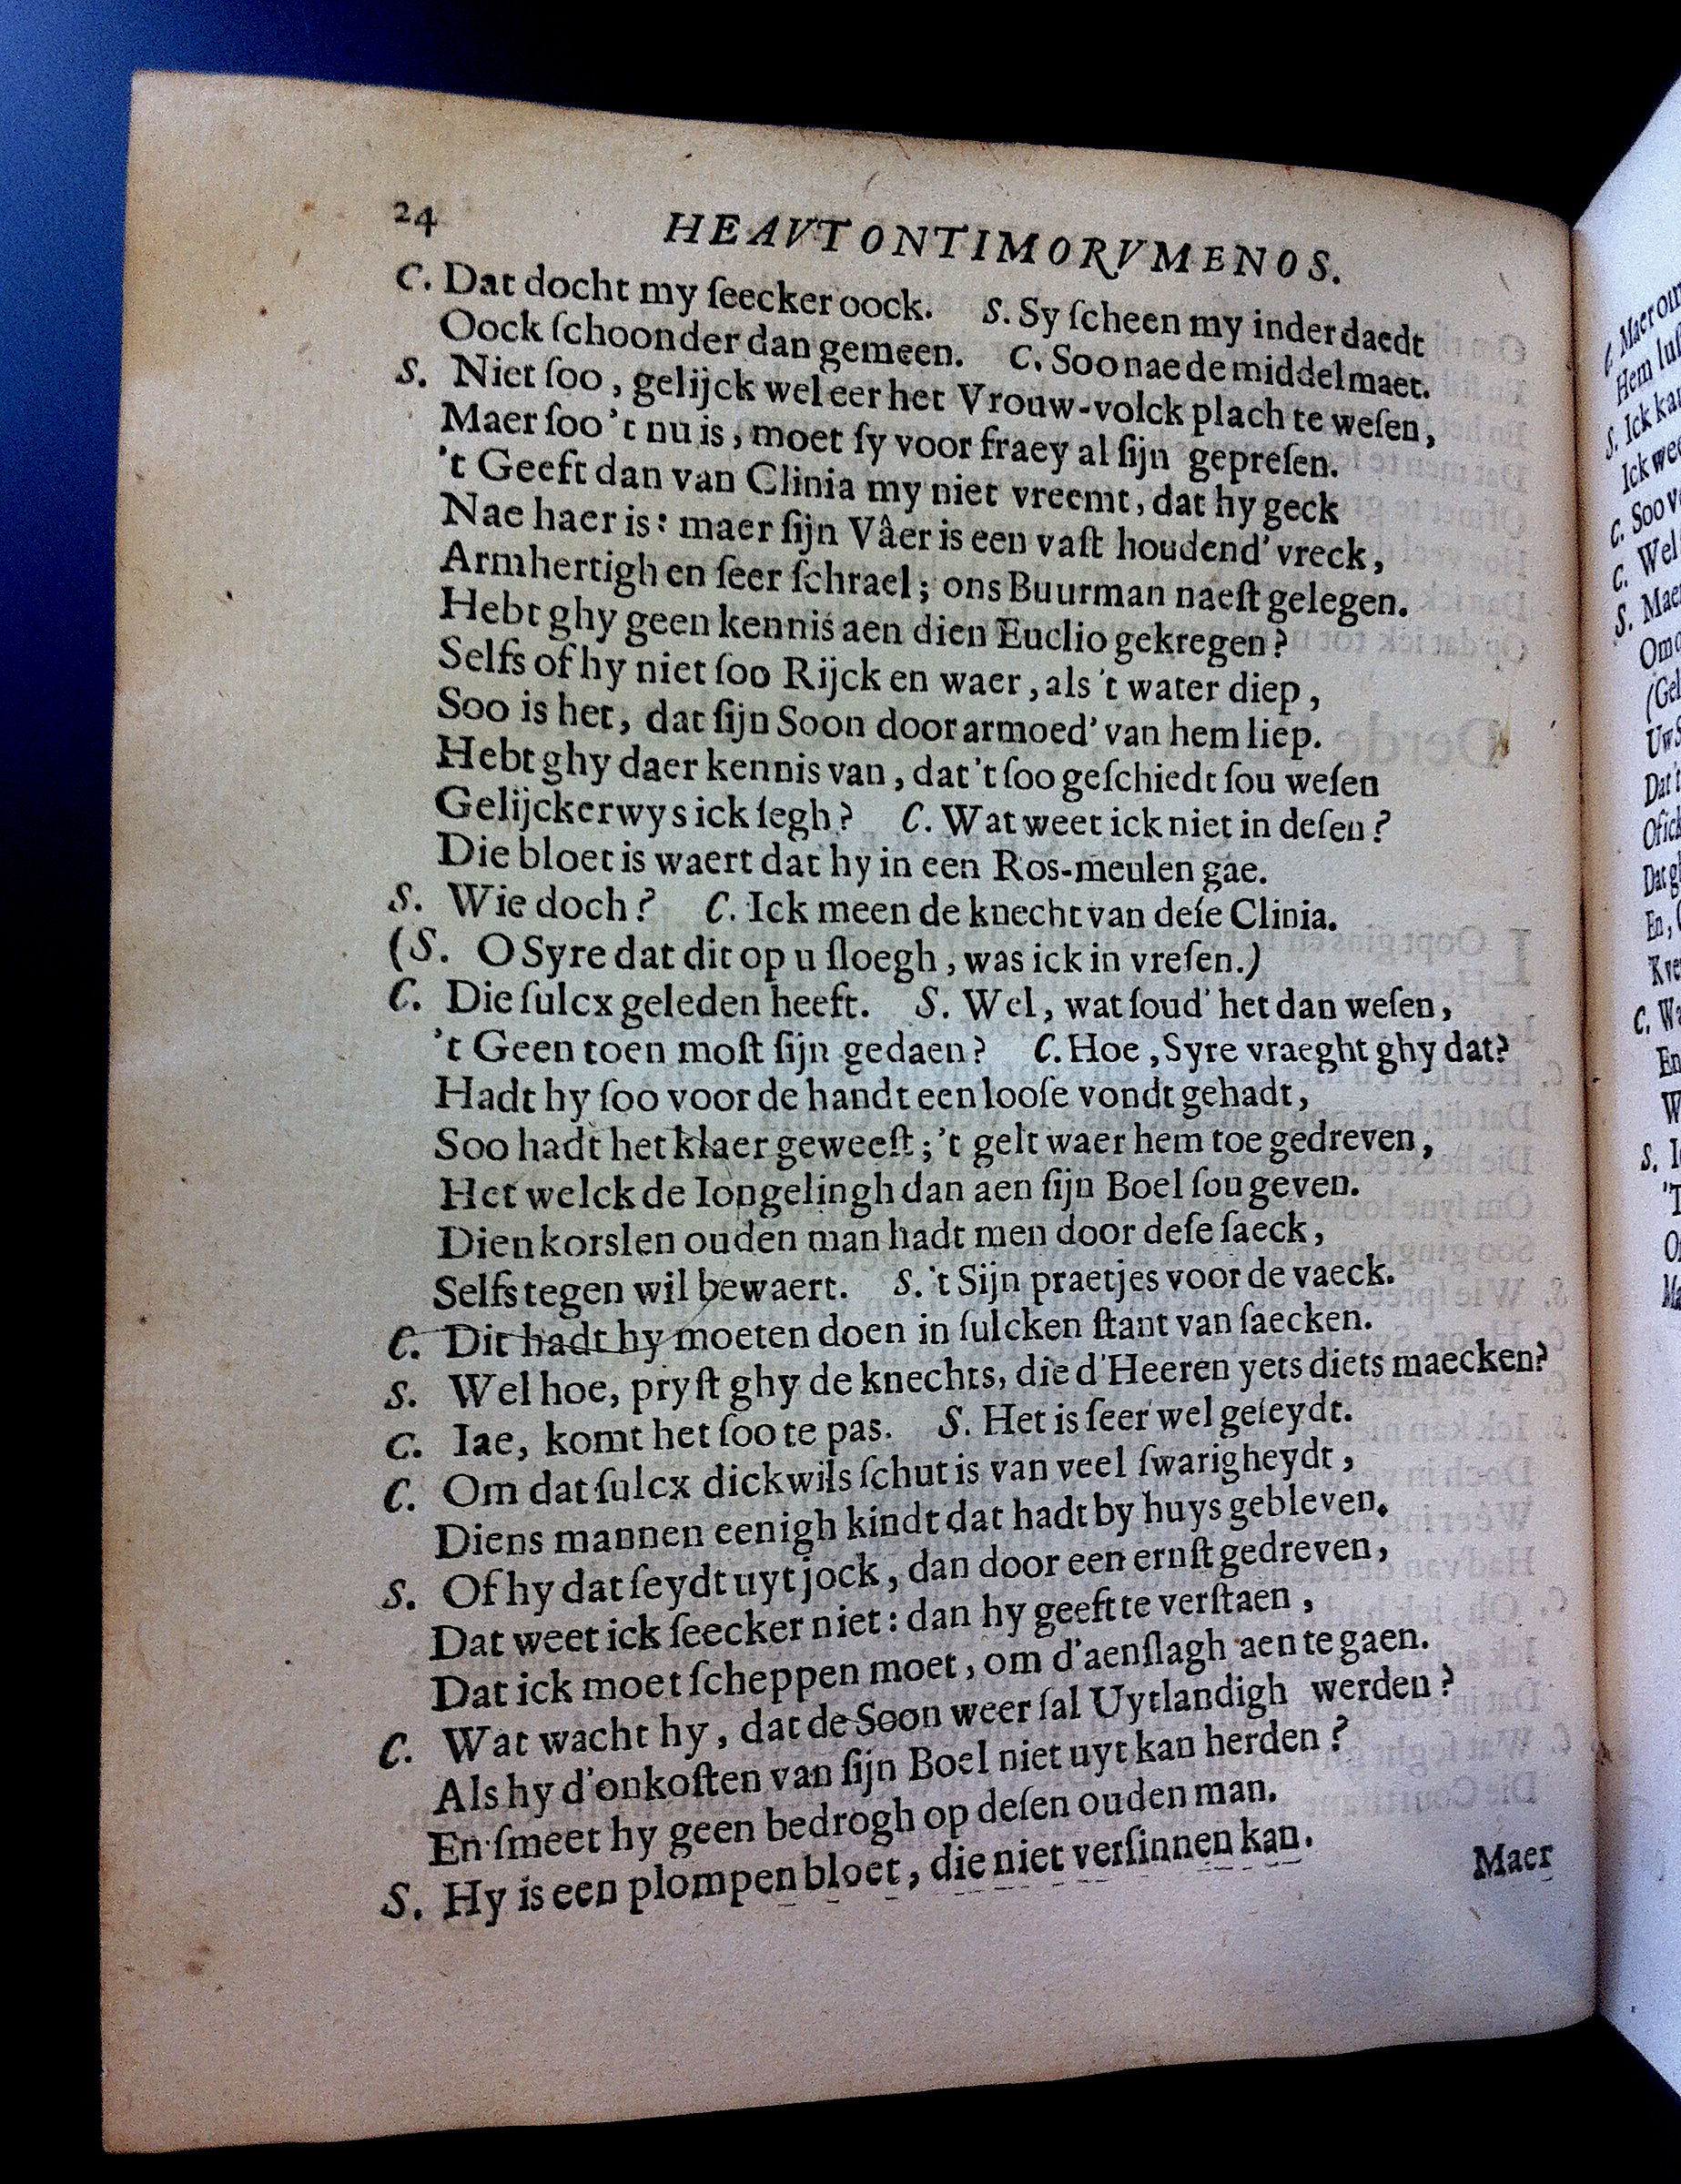 24
HEAVTONTIMORVMENOS.
C. Dat docht my ſeecker oock. S. Sy ſcheen my inder daedt
Oock ſchoonder dan gemeen. C. Soo nae de middelmaet.
S. Niet ſoo, gelijck wel eer het Vrouw-volck plach te weſen,
Maer ſoo 't nu is, moet ſy voor fraey al ſijn gepreſen.
't Geeft dan van Clinia my niet vreemt, dat hy geck
Nae haer is: maer ſijn Vâer is een vaſt houdend' vreck,
Armhertigh en ſeer ſchrael; ons Buurman naeſt gelegen.
Hebt ghy geen kennis aen dien Euclio gekregen?
Selfs of hy niet ſoo Rijck en waer, als 't water diep,
Soo is het, dat ſijn Soon door armoed' van hem liep.
Hebt ghy daer kennis van, dat 't ſoo geſchiedt ſou weſen
Gelijckerwys ick ſegh? C. Wat weet ick niet in deſen?
Die bloet is waert dat hy in een Ros-meulen gae.
S. Wie doch? C. Ick meen de knecht van deſe Clinia.
(S. O Syre dat dit op u ſloegh, was ick in vreſen.)
C. Die ſulcx geleden heeft. S. Wel, wat ſoud' het dan weſen,
't Geen toen moſt ſijn gedaen? C. Hoe, Syre vraeght ghy dat?
Hadt hy ſoo voor de handt een looſe vondt gehadt,
Soo hadt het klaer geweeſt; 't gelt waer hem toe gedreven,
Het welck de Iongelingh dan aen ſijn Boel ſou geven.
Dien korslen ouden man hadt men door deſe ſaeck,
Selfs tegen wil bewaert. S. 't Sijn praetjes voor de vaeck.
C. Dit hadt hy moeten doen in ſulcken ſtant van ſaecken.
S. Wel hoe, pryſt ghy de knechts, die d'Heeren yets diets maecken?
C. Iae, komt het ſoo te pas. S. Het is ſeer wel geſeydt.
C. Om dat ſulcx dickwils ſchut is van veel ſwarigheydt,
Diens mannen eenigh kindt dat hadt by huys gebleven.
S. Of hy dat ſeydt uyt jock, dan door een ernſt gedreven,
Dat weet ick ſeecker niet: dan hy geeft te verſtaen,
Dat ick moet ſcheppen moet, om d'aenſlagh aen te gaen.
C. Wat wacht hy, dat de Soon weer ſal Uytlandigh werden?
Als hy d'onkoſten van ſijn Boel niet uyt kan herden?
En ſmeet hy geen bedrogh op deſen ouden man.
S. Hy is een plompen bloet, die niet verſinnen kan.
Maer